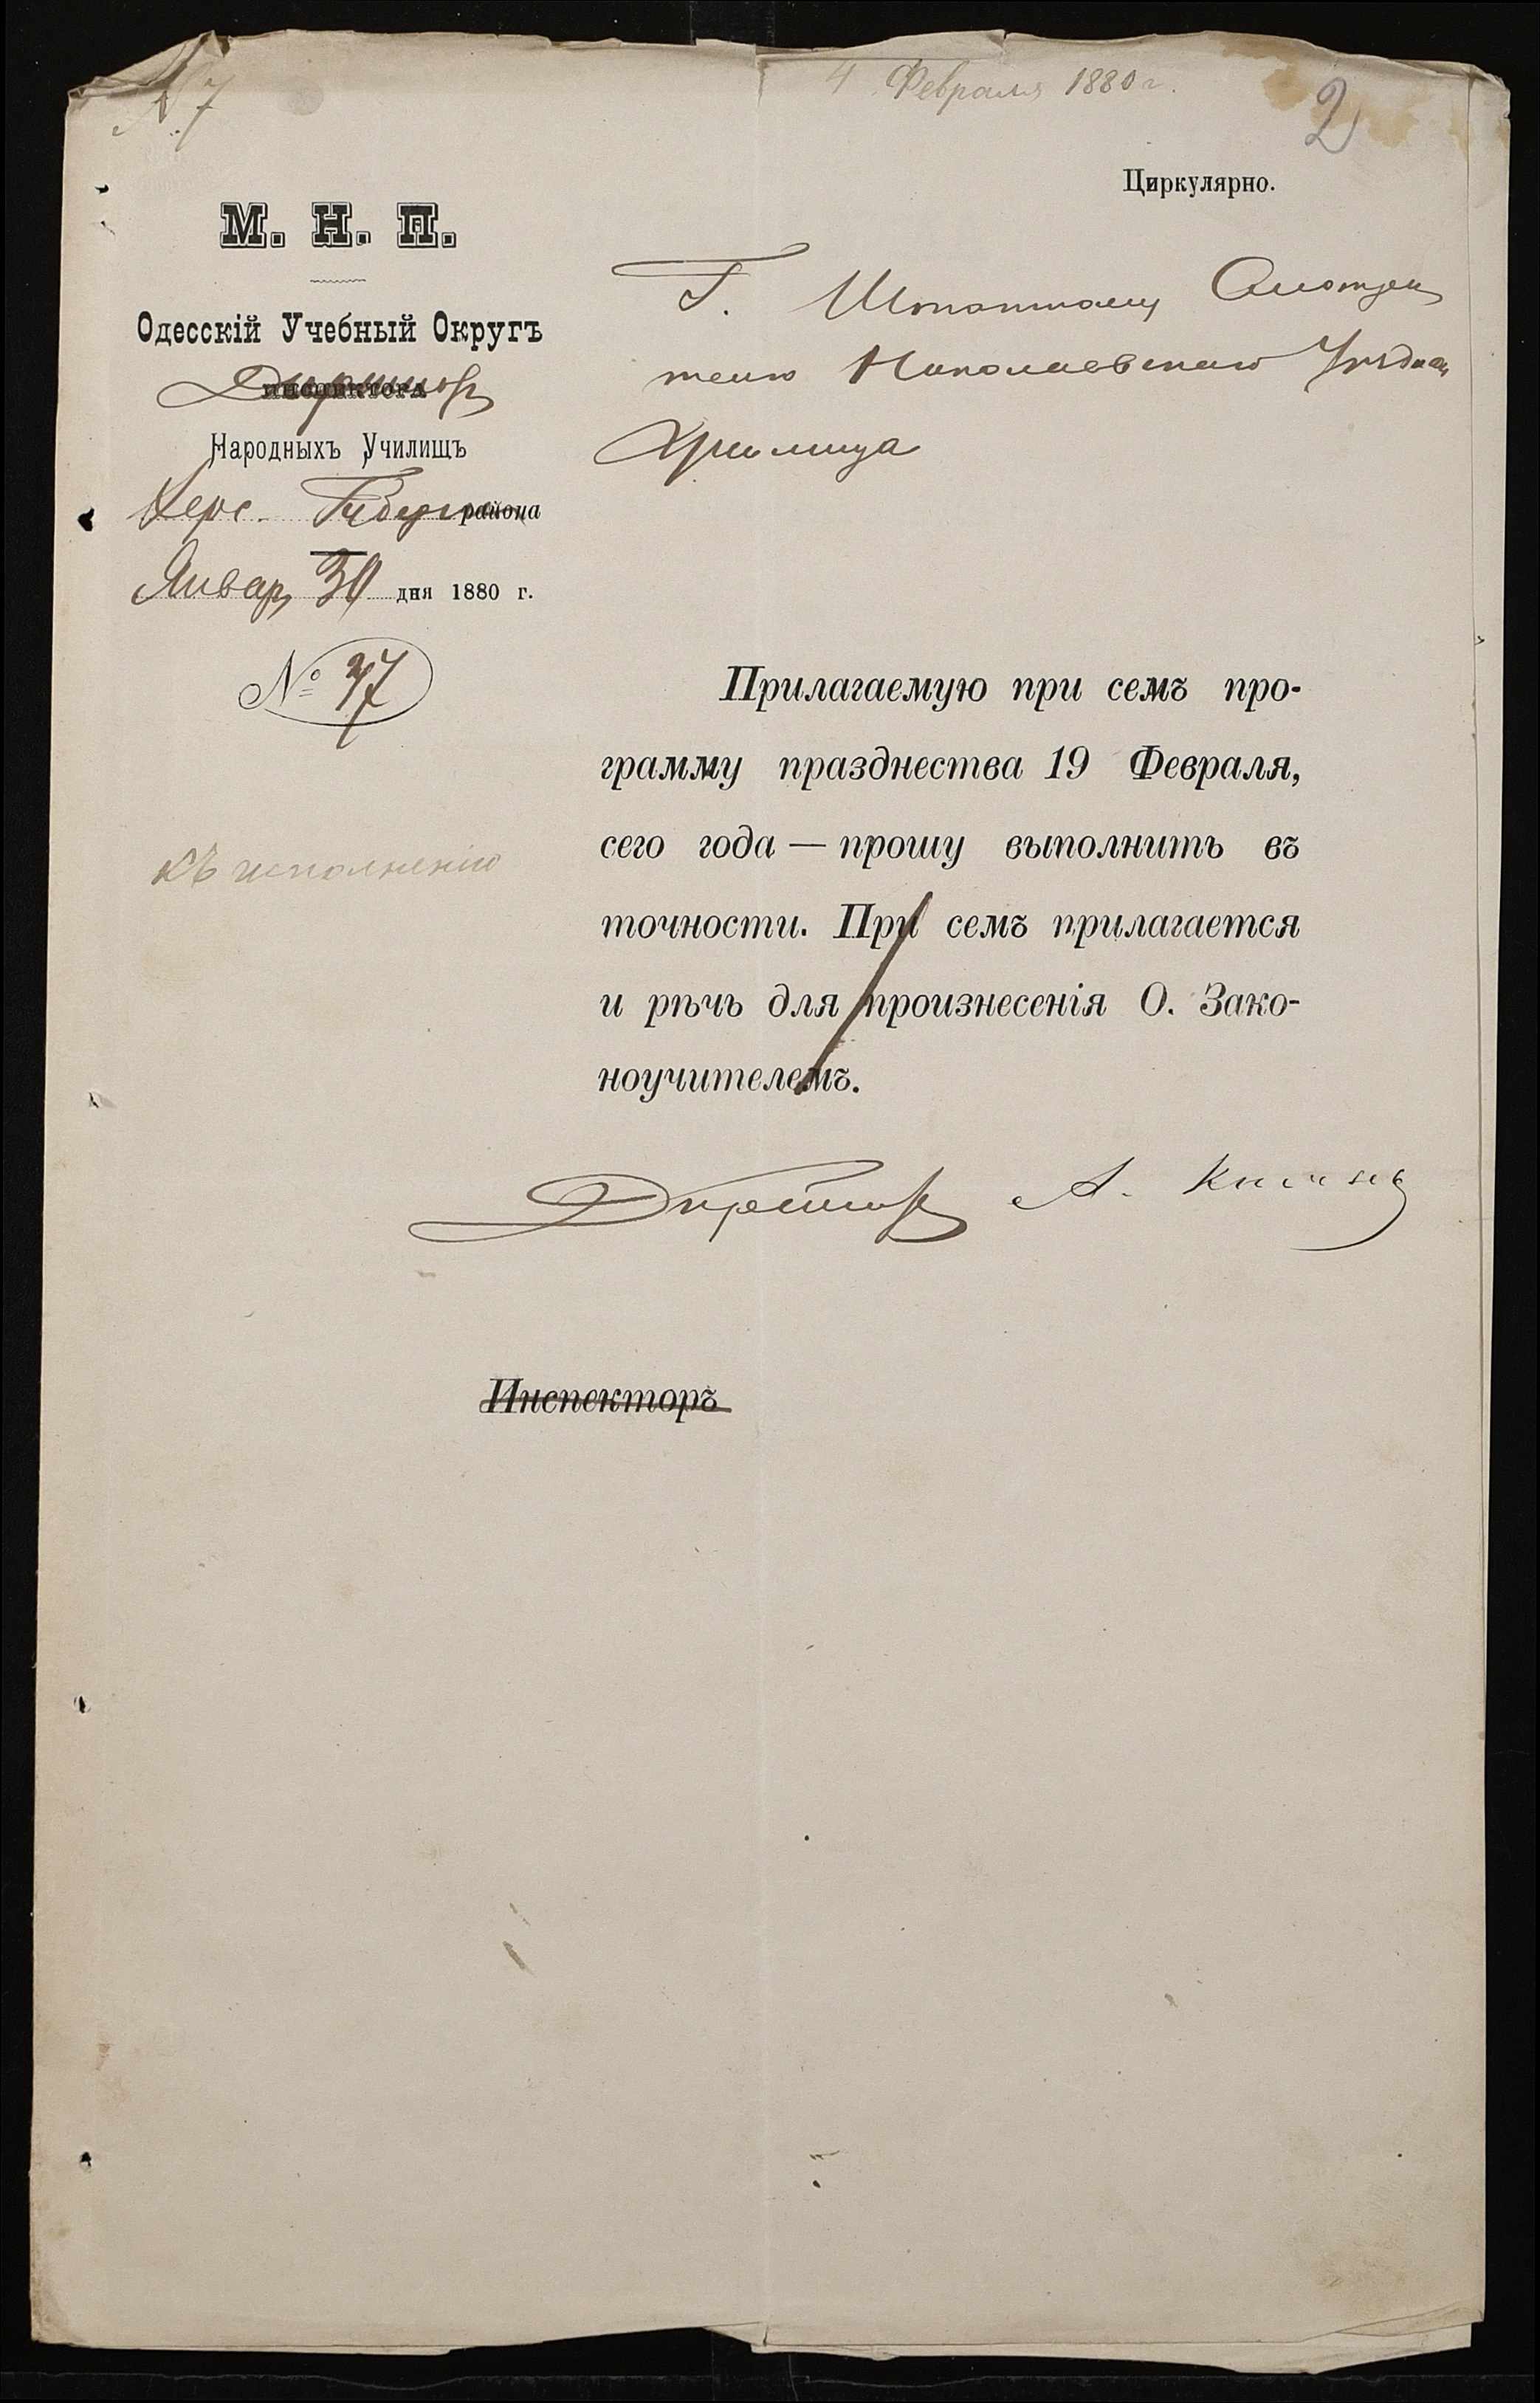 № 7
4 Февраля 1880 г.
2
Циркулярно.
М. Н. П.
Одесскій Учебный Округъ
инспектора
Директоръ
Народныхъ Училищъ
Херс. Губерн района
Январ 30 дня 1880 г.
№ 37
къ исполненію
Г. Штатному Смотри
телю Николаевскаго Уѣздн
Училища
Прилагаемую при семъ про-
грамму празднества 19 Февраля,
сего года — прошу выполнить въ
точности. При семъ прилагается
и рѣчь для произнесенія О. Зако-
ноучителемъ.
Директоръ А.
Инспекторъ